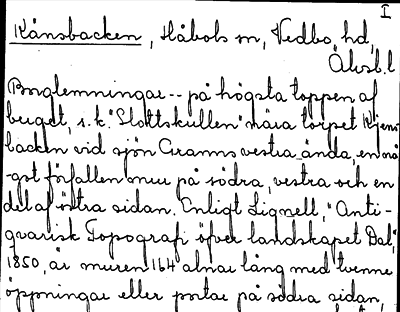 I
Kånsbacken, Håbols sn, Vedbo hd,
Älvsb.l
Borglemningar -- på högsta toppen af
berget, s.k. "Slottskullen" nära torpet Kjens-
backen vid sjön Grann's vestra ända, en nå-
got förfallen mur på södra, vestra och en
del af östra sidan. Enligt Lignell, "Anti-
qvarisk Topografi öfver landskapet Dal,"
1850, är muren 164 alnar lång med tvenne
öppningar eller portar på södra sidan,